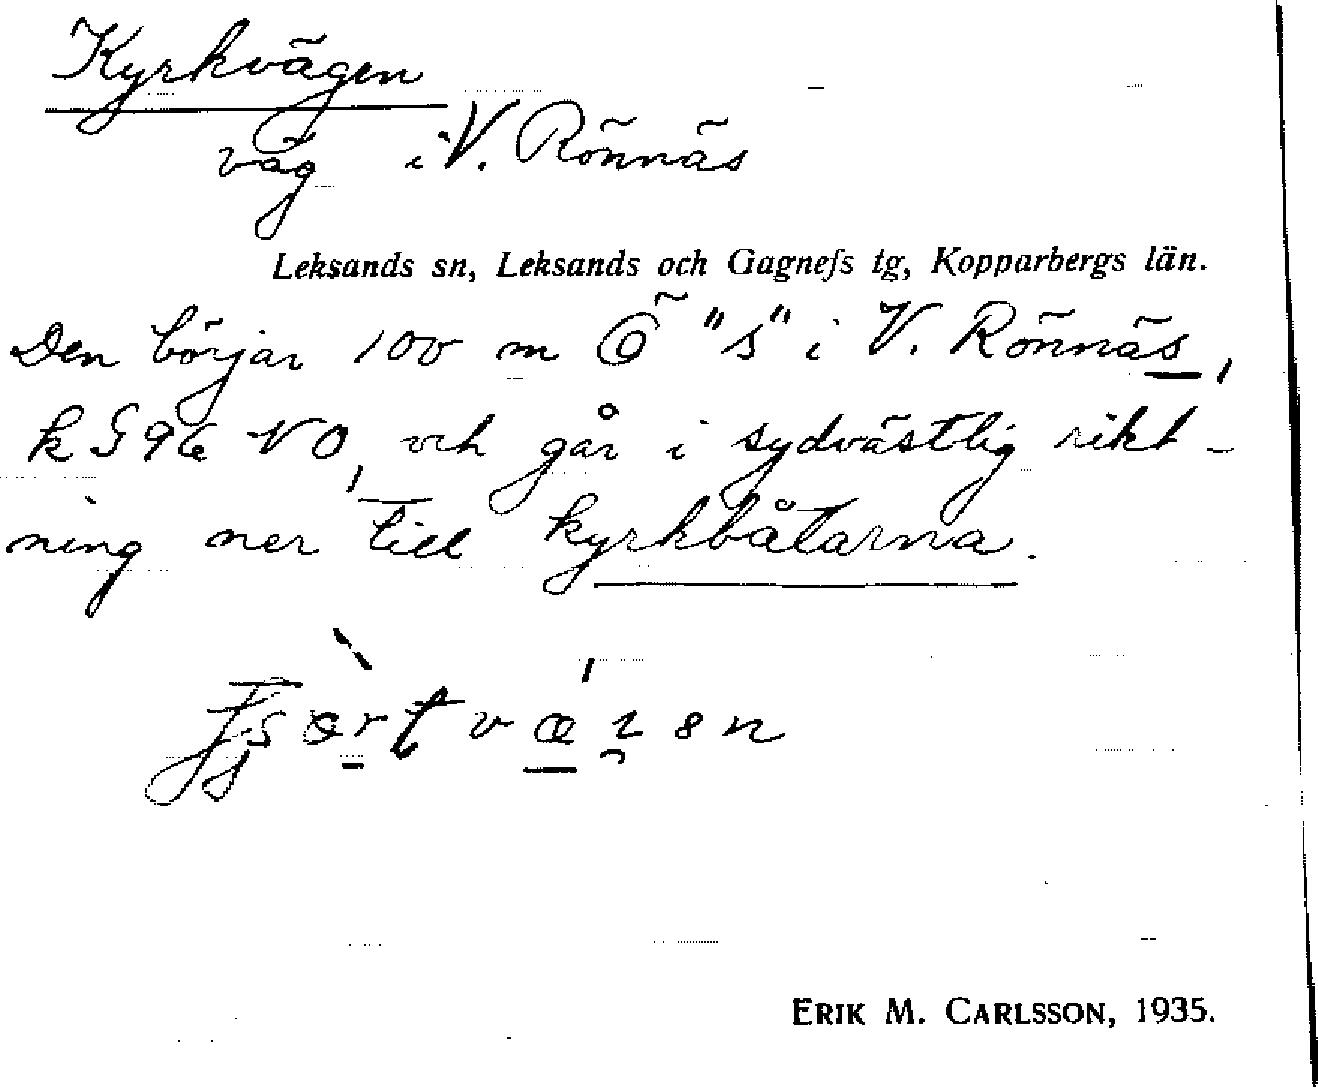 Kyrkvägen
väg i V. Rönnäs
Leksands sn, Leksands och Gagnefs tg, Kopparbergs län.
Den börjar 100 m Ö "s" i V. Rönnäs,
k § 96 NO, och går i sydvästlig rikt-
ning ner till kyrkbåtarna.
ERIK M. CARLSSON, 1935.